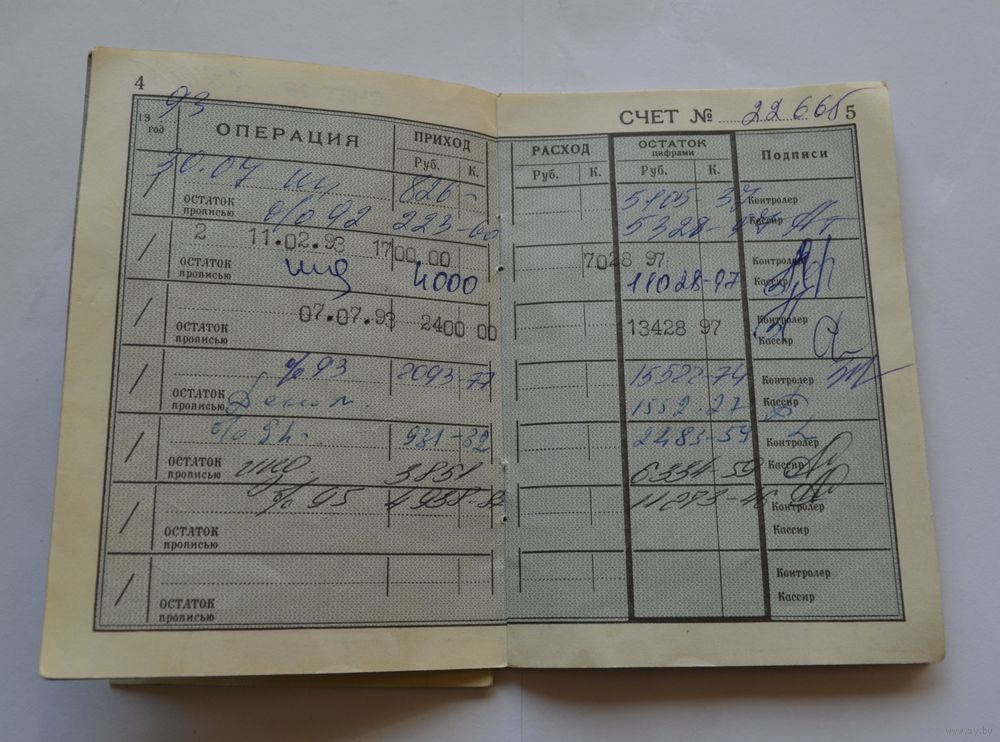 4
СЧЕТ № 22665 5
19 93
год ОПЕРАЦИЯ ПРИХОД РАСХОД ОСТАТОК
цифрами Подписи
Руб. К. Руб. К. Руб. К.
30.07 826- 5105-37 Контролер
ОСТАТОК
прописью % 92 223-60 5328- Кассир
2 11.02.93 1700.00 7028 97 Контролер
ОСТАТОК
прописью инд 4000 11028-97 Кассир
07.07.93 2400 00 13428 97 Контролер
ОСТАТОК
прописью Кассир
% 93 2093-77 15522-74 Контролер
ОСТАТОК
прописью Деном. 1552.27 Кассир
% 94. 931-32 2483-59 Контролер
ОСТАТОК
прописью инд. 3851 6334-59 Кассир
% 95 4938- 11273-46 Контролер
ОСТАТОК
прописью Кассир
Контролер
ОСТАТОК
прописью Кассир
www.ay.by